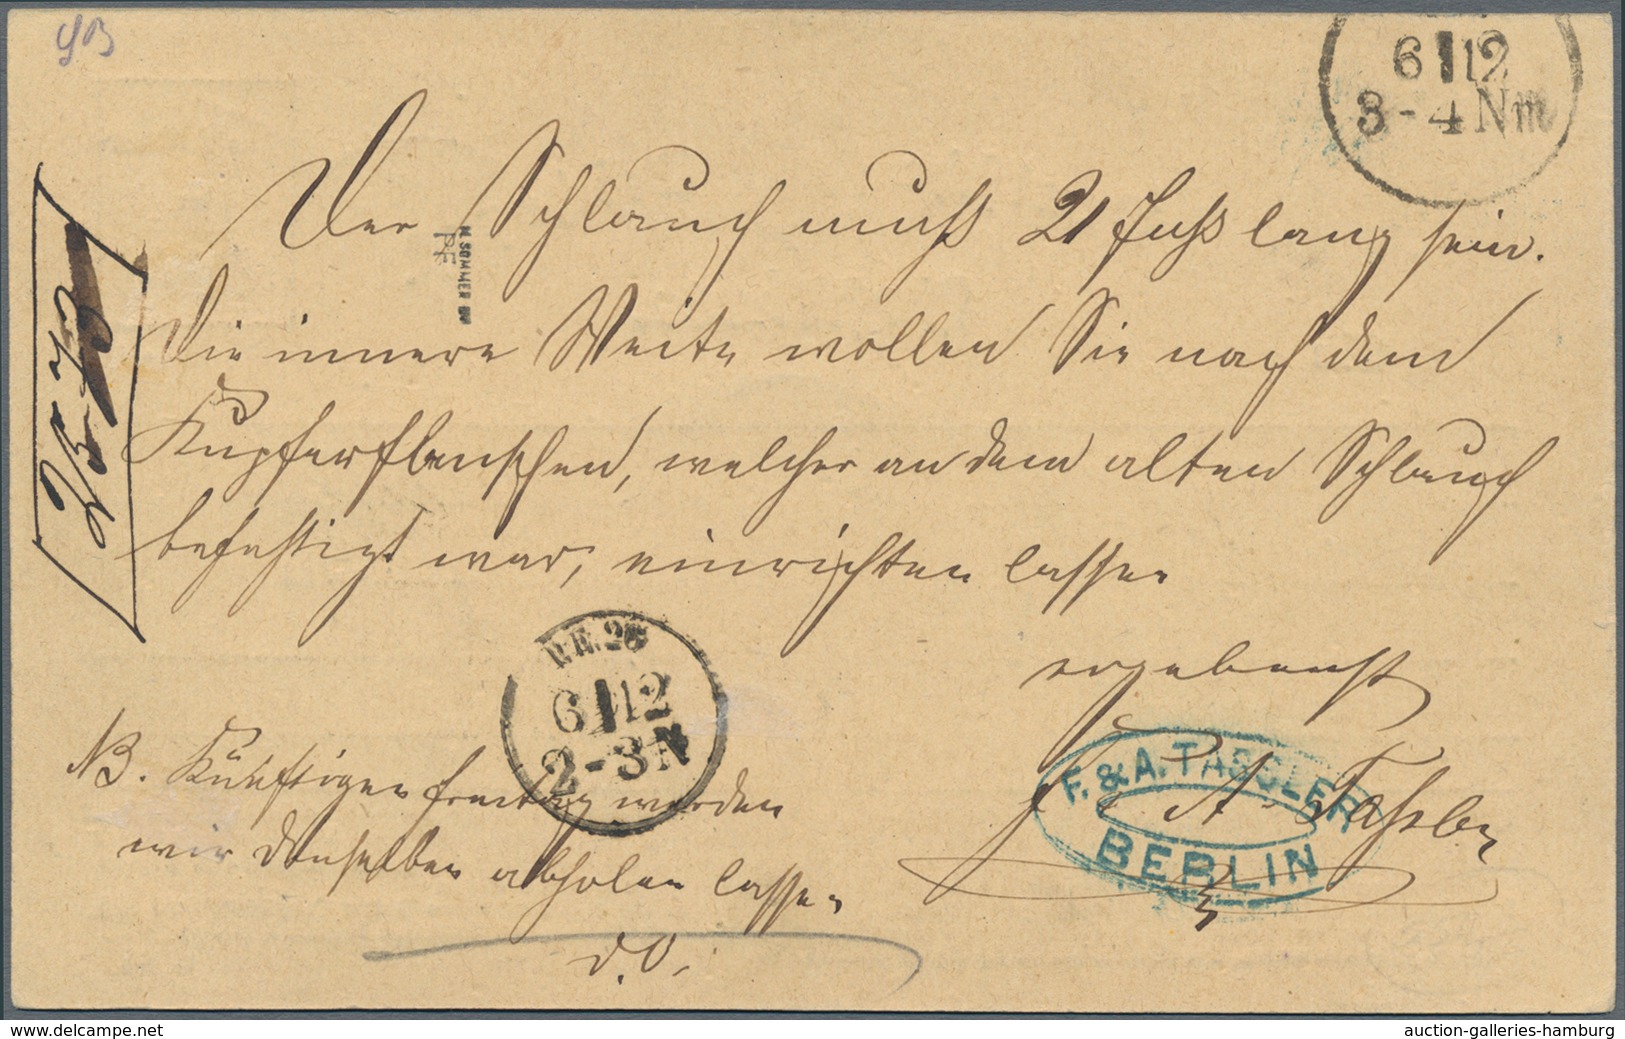 6 12
3-4 Nm
Der Schlauch muß 21 Fuß lang sein.
M. SOMMER BPP
Die innere Weite wollen Sie nach dem
Kupferflanschen, welcher an dem alten Schlauch
befestigt war, einrichten lassen
P.E. 26
6 12
2-3 N
ergebenst
F. & A. TASSLER
BERLIN
F & A. Tassler
NB. Künftigen Freitag werden
wir denselben abholen lassen
d.O.
www.delcampe.net
auction-galleries-hamburg